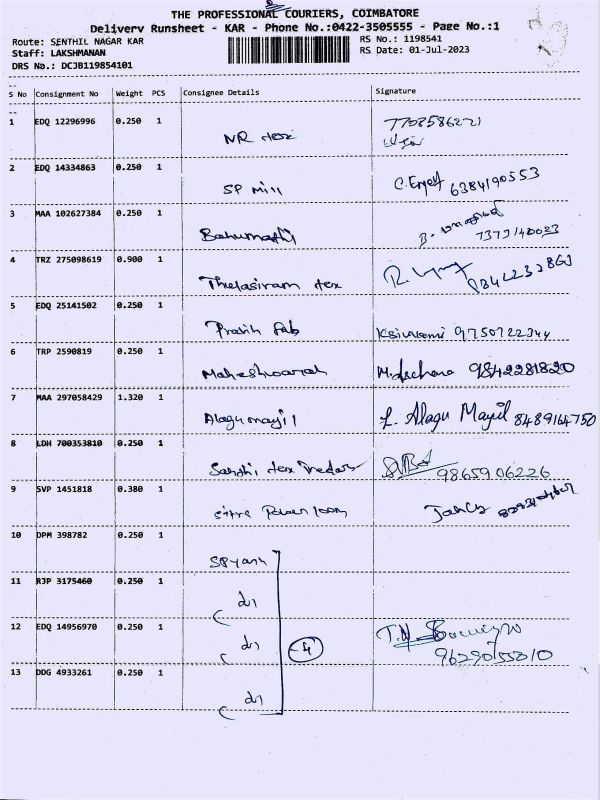 THE PROFESSIONAL COURIERS, COIMBATORE
Delivery Runsheet - KAR - Phone No.:0422-3505555 - Page No.:1
Route: SENTHIL NAGAR KAR
RS No.: 1198541
Staff: LAKSHMANAN
RS Date: 01-Jul-2023
DRS No.: DCJB119854101
S No Consignment No Weight PCS Consignee Details Signature
1 EDQ 12296996 0.250 1
NR tex
2 EDQ 14334863 0.250 1
SP Mill 6384190553
3 MAA 102627384 0.250 1
Banumathi
4 TRZ 275098619 0.900 1
Thulasiram tex
5 EDQ 25141502 0.250 1
Fab 9750722344
6 TRP 2590819 0.250 1
Maheshwarah 9842281820
7 MAA 297058429 1.320 1
Alagumayil L. Alagu Mayil 8489164750
8 LDH 700353810 0.250 1
tex 9865906226
9 SVP 1451818 0.380 1
Powerloom
10 DPM 398782 0.250 1
SP yarn
11 RJP 3175460 0.250 1
12 EDQ 14956970 0.250 1
4
9629055810
13 DDG 4933261 0.250 1